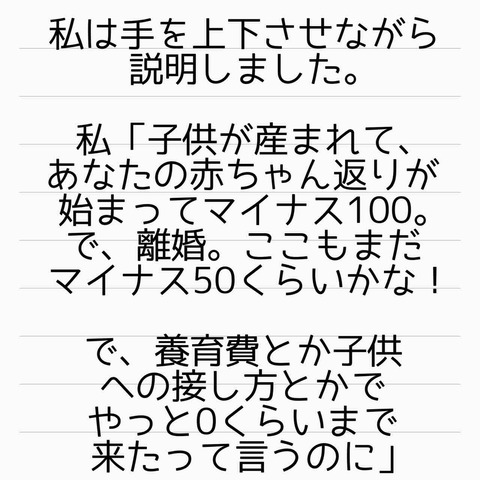 私は手を上下させながら
説明しました。
私「子供が産まれて、
あなたの赤ちゃん返りが
始まってマイナス100。
で、離婚。ここもまだ
マイナス50くらいかな！
で、養育費とか子供
への接し方とかで
やっと0くらいまで
来たって言うのに」